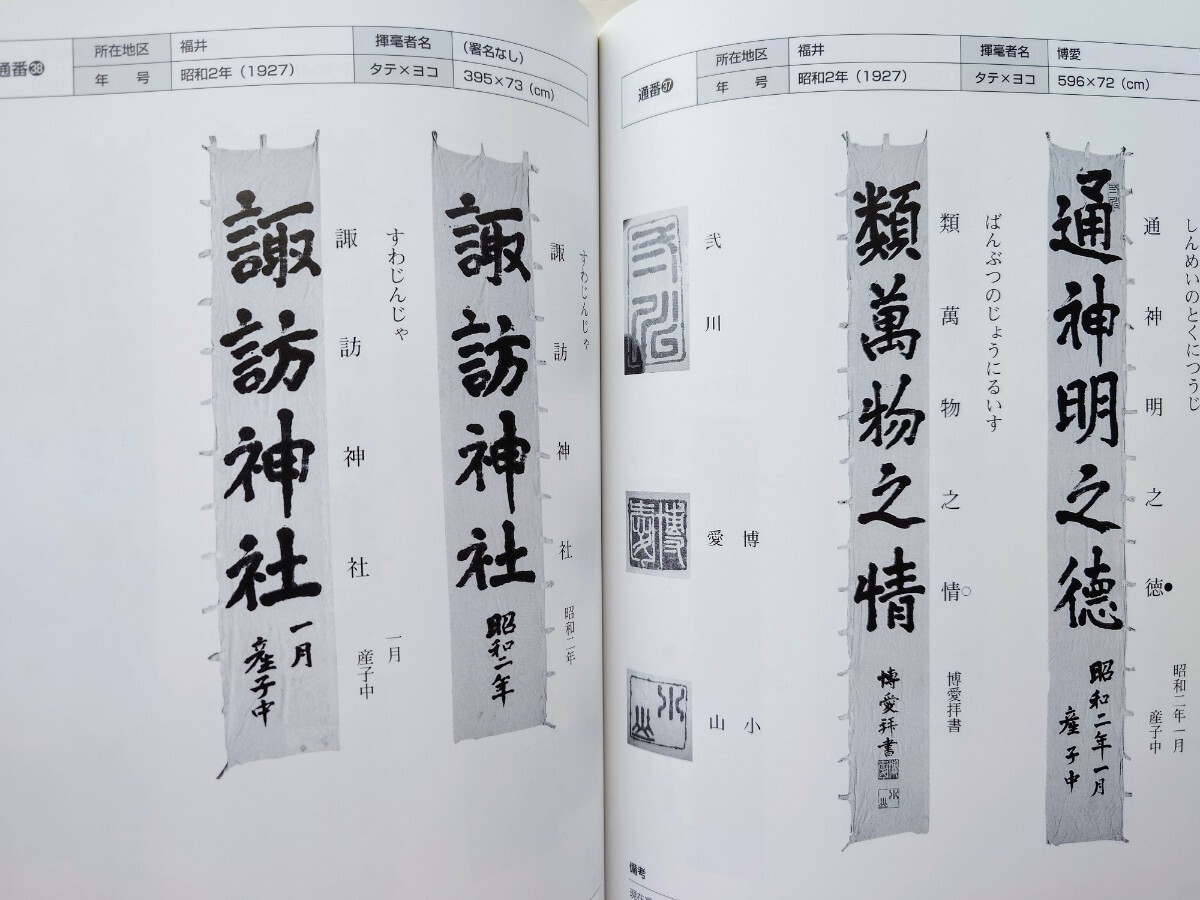 通番㊲
所在地区 福井 揮毫者名 博愛
年号 昭和2年（1927） タテ×ヨコ 596×72（cm）
しんめいのとくにつうじ
通神明之徳●
昭和二年一月
産子中
通神明之徳
昭和二年一月
産子中
ばんぶつのじょうにるいす
類萬物之情○
博愛拝書
類萬物之情
博愛拝書
博愛
小山
弐川
博愛
小山
備考
通番㊳
所在地区 福井 揮毫者名 （署名なし）
年号 昭和2年（1927） タテ×ヨコ 395×73（cm）
すわじんじゃ
諏訪神社
昭和二年
諏訪神社
昭和二年
すわじんじゃ
諏訪神社
一月
産子中
諏訪神社
一月
産子中